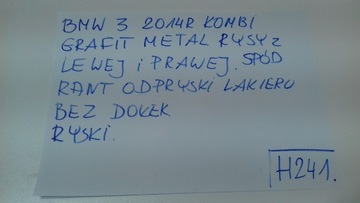 BMW 3 2014R KOMBI
GRAFIT METAL RYSY Z
LEWEJ i PRAWEJ. SPÓD
RANT ODPRYSKI LAKIERU
BEZ DOKEK
RYSKI.
H241.